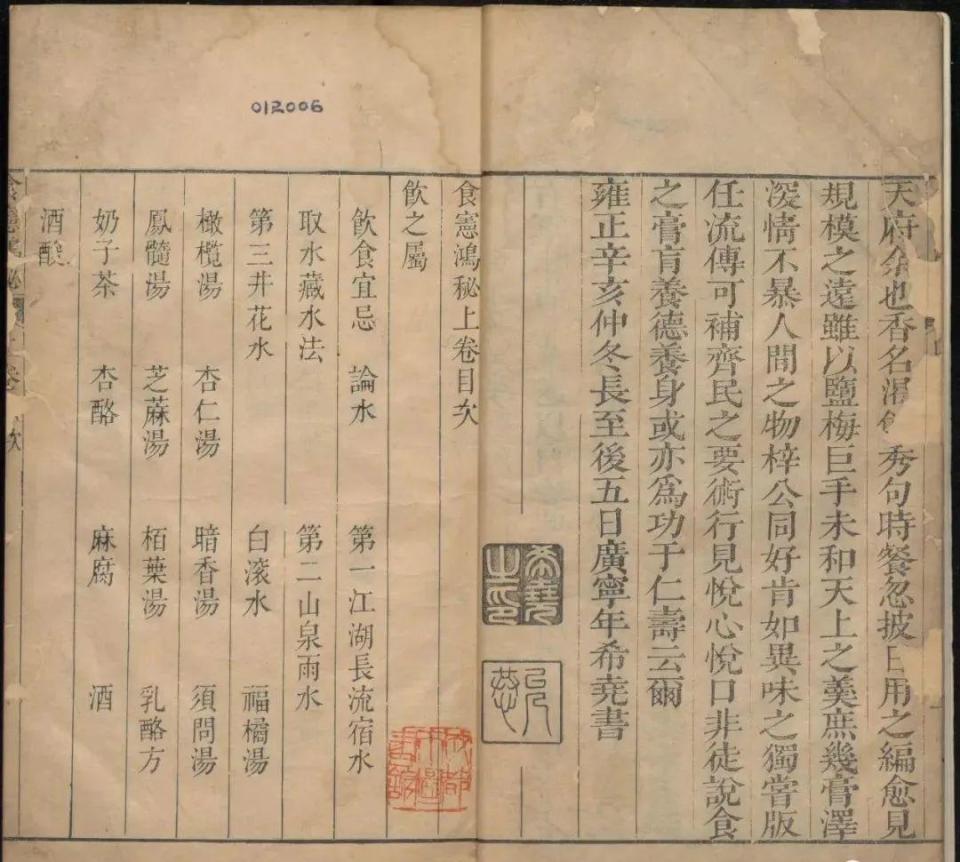 天府余也香名□□秀句時餐忽披日用之編愈見
規模之遠雖以鹽梅巨手未和天上之羹庶幾膏澤
深情不暴人間之物梓公同好肯如異味之獨嘗版
任流傳可補齊民之要術行見悅心悅口非徒說食
之膏肓養德養身或亦爲功于仁壽云爾
雍正辛亥仲冬長至後五日廣寧年希堯書
希堯之印
食憲鴻秘上卷目次
飲之屬
飲食宜忌 論水 第一江湖長流宿水
取水藏水法 第二山泉雨水
第三井花水 白滾水 福橘湯
橄欖湯 杏仁湯 暗香湯 須問湯
鳳髓湯 芝蔴湯 栢葉湯 乳酪方
奶子茶 杏酪 麻腐 酒
酒酸
012006